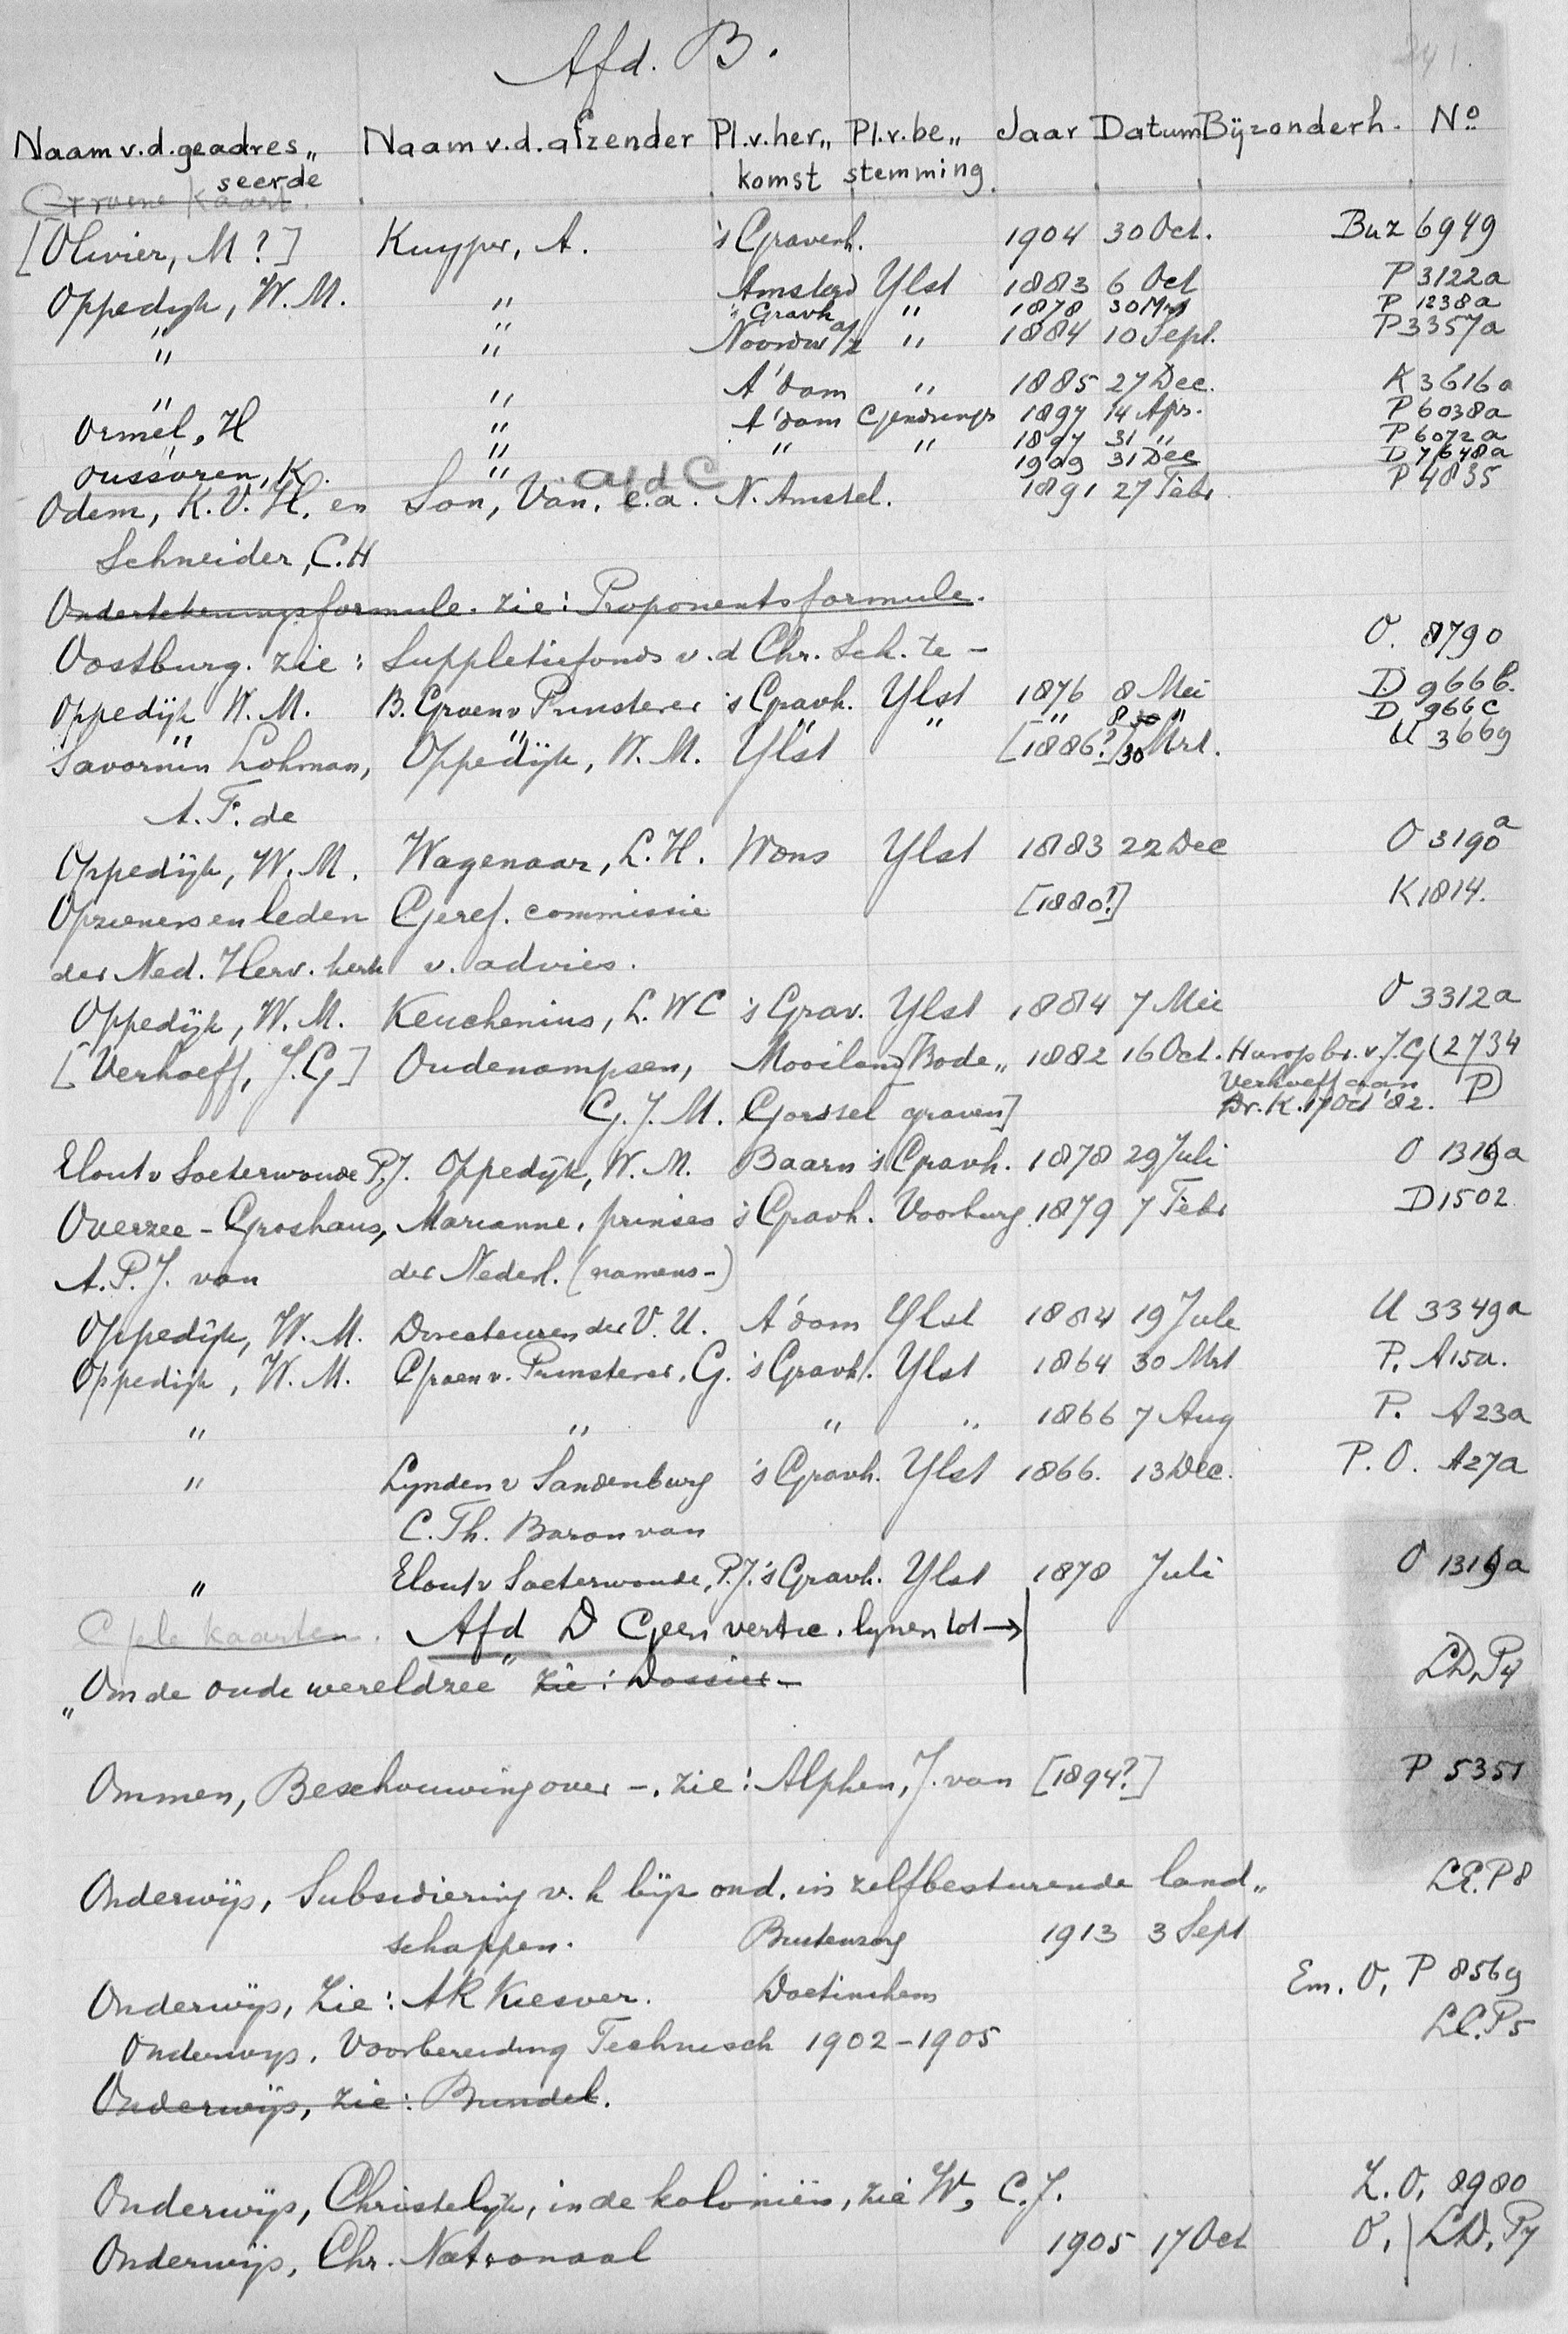 Afd. B.
241.
Naam v.d. geadres„ Naam v.d. afzender Pl.v.her„ Pl.v.be„ Jaar Datum Bijzonderh. No
seerde komst stemming
Groene Kaart.
[Olivier, M?] Kuyper, A. 's Gravenh. 1904 30 Oct. Buz 6949
Oppedijk, W.M. " Amsterd Ylst 1883 6 Oct P 3122a
's Gravh " 1878 30 Mrt P 1238a
" " Noordw a/z " 1884 10 Sept. P 3357a
" " A'dam " 1885 27 Dec. K 3616a
Ormel, H " A'dam Gendringe 1897 14 Apr. P 6038a
" " " 1897 31 " P 6072a
Oussoren, K. " 1909 31 Dec D 7648a
Afd C
Odem, K.V.H. en Son, Van, e.a. N. Amstel. 1891 27 Febr. P 4835
Schneider, C.H
Ondertekeningsformule. zie: Proponentsformule.
Oostburg. zie: Suppletiefonds v.d Chr. Sch. te - O. 8790
Oppedijk W.M. B. Groen v Prinsterer 's Gravh. Ylst 1876 8 Mei D 966b.
" " " " " 8 " D 966c
Savornin Lohman, Oppedijk, W.M. Ylst [1886?] 30 Mrt. U 3669
A.F. de
Oppedijk, W.M. Wagenaar, L.H. Wons Ylst 1883 22 Dec O 3190a
Opzieners en leden Geref. commissie [1880?] K 1814.
der Ned. Herv. kerk v. advies.
Oppedijk, W.M. Keuchenius, L.WC 's Grav. Ylst 1884 7 Mei O 3312a
[Verhoeff, J.G] Oudenampsen, Mooiland [Bode„ 1882 16 Oct. Hurop br. v. J.G (2734
Verhoeff aan P)
G.J.M. Gorssel graven] Dr. K. 17 Oct '82.
Elout v Soeterwoude P.J. Oppedijk, W.M. Baarn 's Gravh. 1878 29 Juli O 1319a
Overzee - Groshans, Marianne, prinses 's Gravh. Voorburg 1879 7 Febr D 1502
A.P.J. van der Nederl. (namens-)
Oppedijk, W.M. Directeuren der V.U. A'dam Ylst 1884 19 Juli U 3349a
Oppedijk, W.M. Groen v. Prinsterer, G. 's Gravh. Ylst 1864 30 Mrt P. A15a.
" " " " 1866 7 Aug P. A23a
" Lynden v Sandenburg 's Gravh. Ylst 1866. 13 Dec. P.O. A27a
C. Th. Baron van
" Elout v Soeterwoude, P.J. 's Gravh. Ylst 1878 Juli O 1319a
Gele kaarten. Afd D Geen vertic. lynen tot →
„Om de oude wereldzee" zie: Dossier - LD, P4
Ommen, Beschouwing over -, zie: Alphen, J. van [1894?] P 5351
Onderwijs, Subsidiering v. h bijz ond. in zelfbesturende land„ LE. P8
schappen. Buitenzorg 1913 3 Sept
Onderwijs, Zie: AR Kiesver. Doetinchem Em. O, P 8569
Onderwys, Voorbereiding Technisch 1902-1905 LC. P5
Onderwijs, zie: Bundel.
Onderwijs, Christelijk, in de koloniën, zie W, C.J. Z.O. 8980
Onderwijs, Chr. Nationaal 1905 17 Oct O, LD, P7